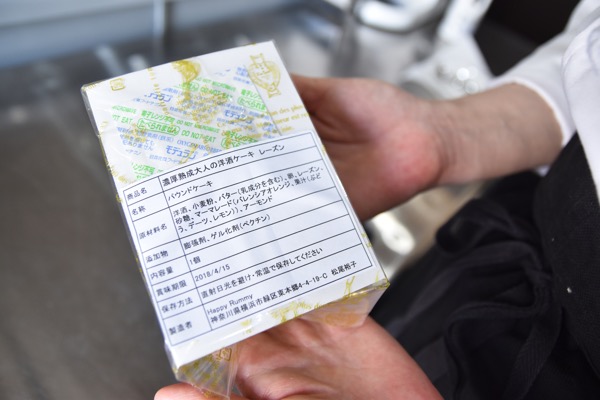 モデュラン
DO NOT EAT
たべられません
商品名 濃厚熟成大人の洋酒ケーキ レーズン
名称 パウンドケーキ
原材料名 洋酒、小麦粉、バター(乳成分を含む)、卵、レーズン、
砂糖、マーマレード(バレンシアオレンジ、果汁(ぶど
う、デーツ、レモン))、アーモンド
添加物 膨張剤、ゲル化剤(ペクチン)
内容量 1個
賞味期限 2018/4/15
保存方法 直射日光を避け・常温で保存してください
製造者 Happy Rummy
神奈川県横浜市緑区東本郷4-4-19-C 松尾裕子